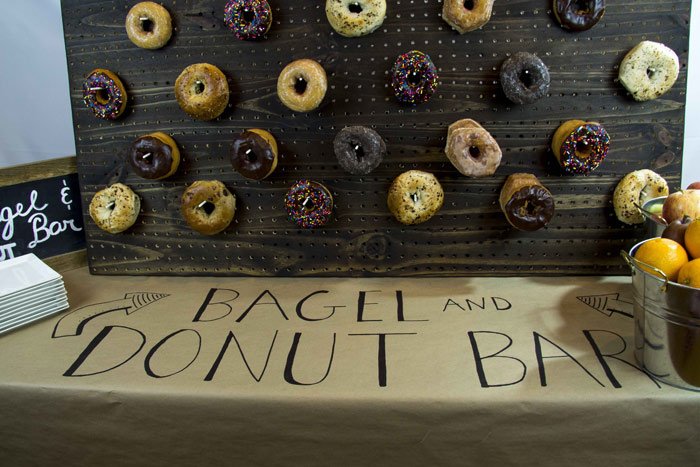 gel &
T Bar
BAGEL AND
DONUT BAR